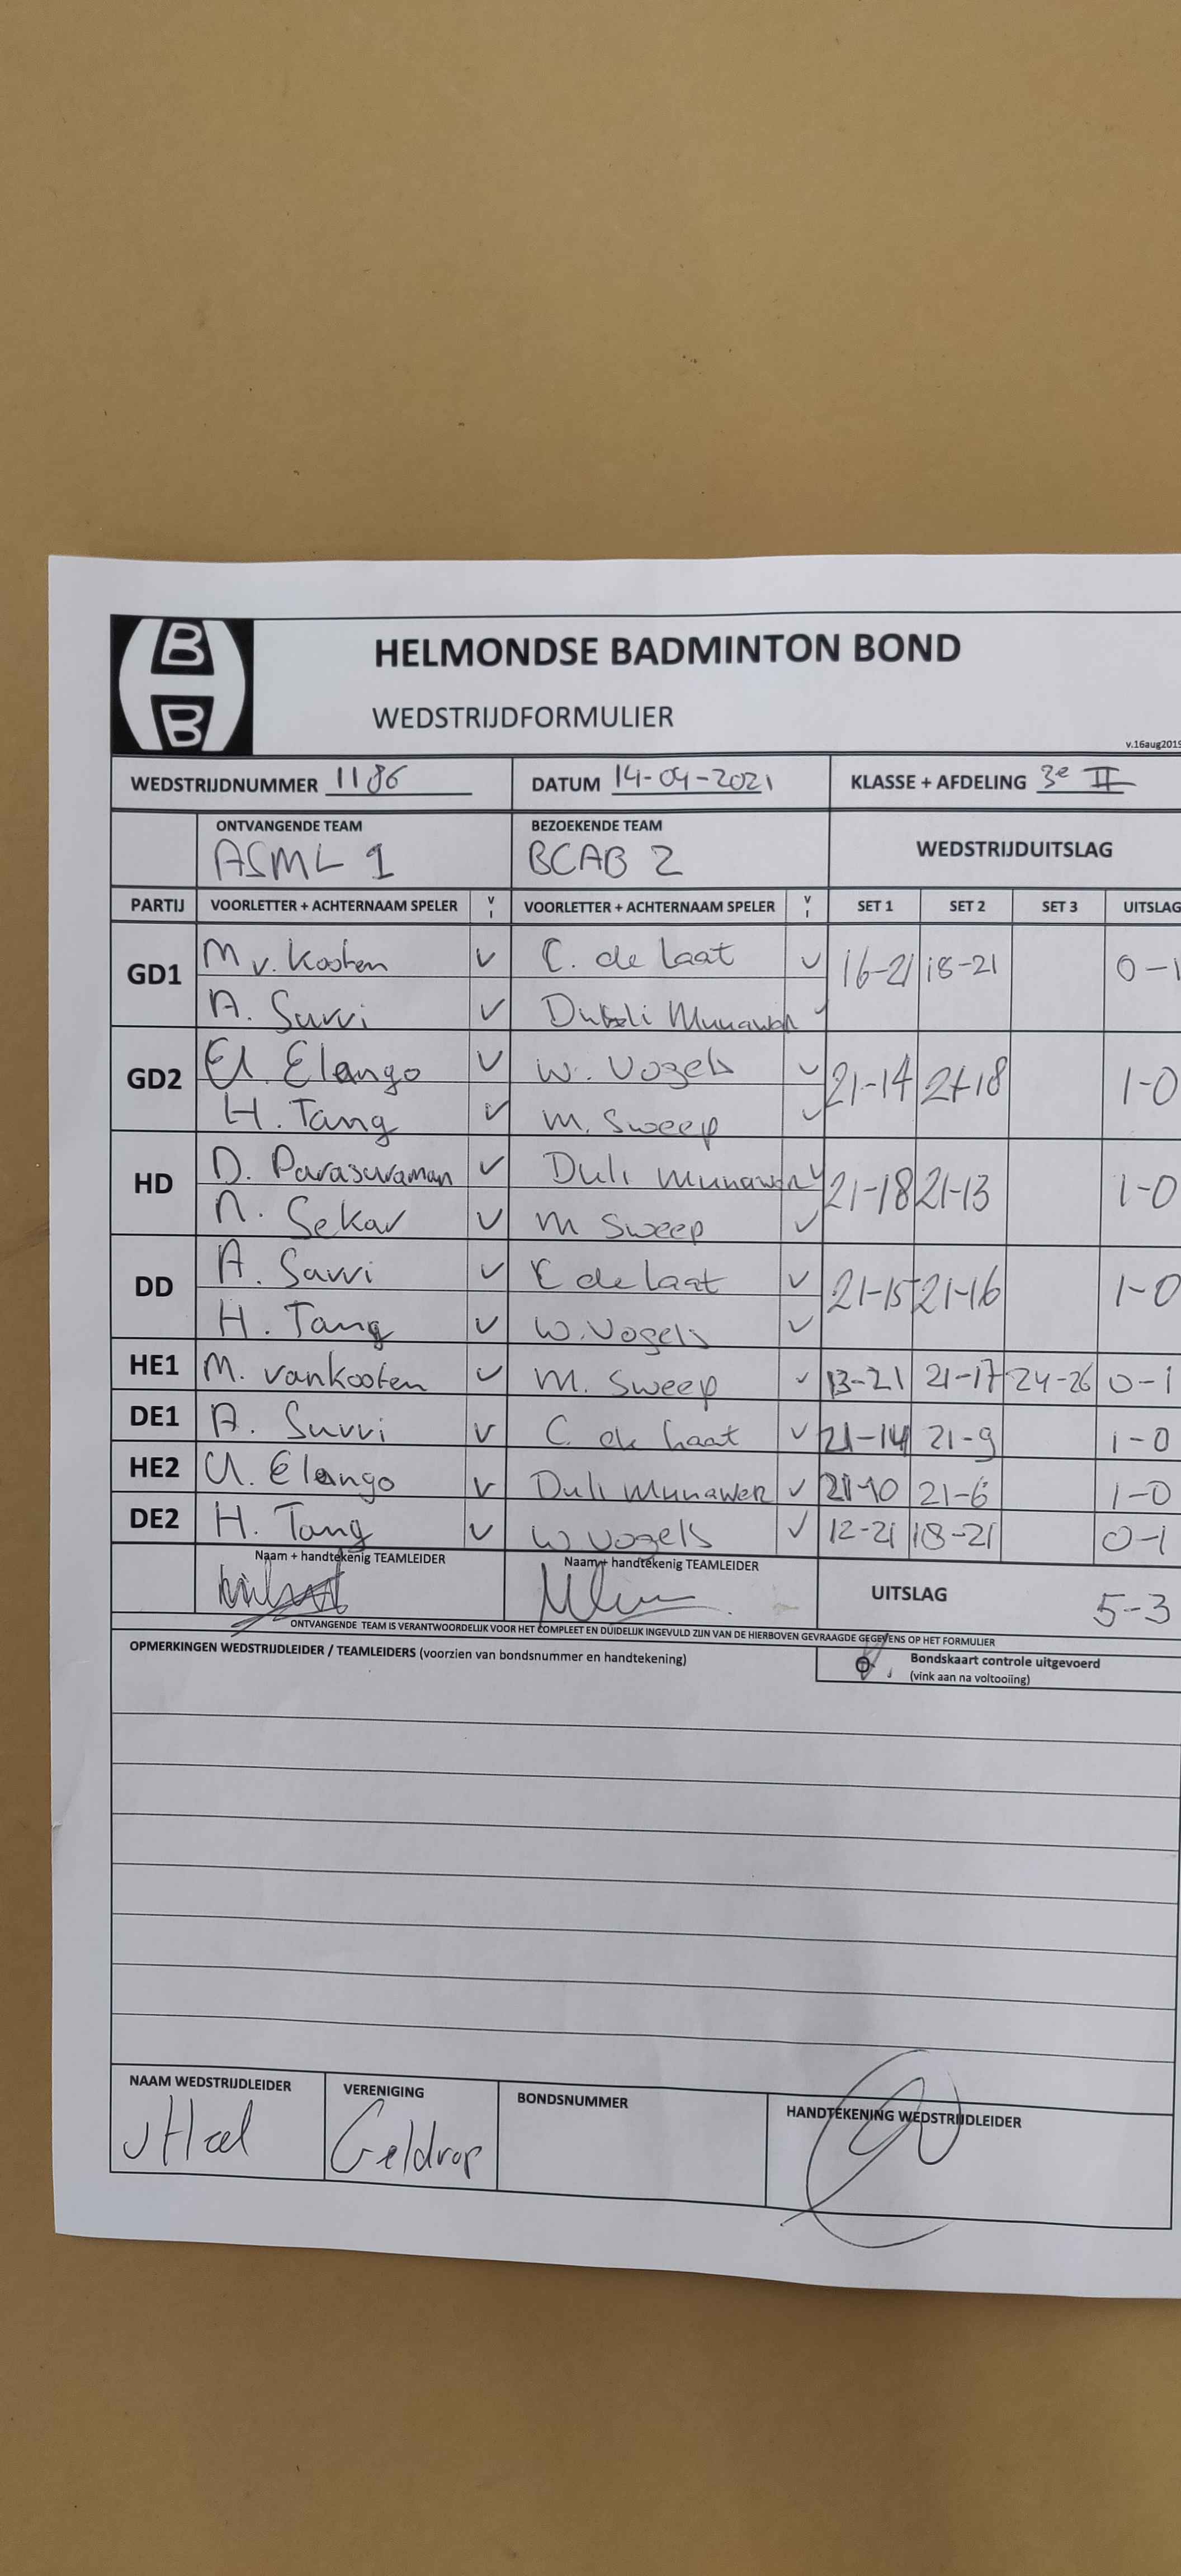 B
B
HELMONDSE BADMINTON BOND
WEDSTRIJDFORMULIER
v.16aug2019
WEDSTRIJDNUMMER 1186 DATUM 14-04-2021 KLASSE + AFDELING 3e II
ONTVANGENDE TEAM BEZOEKENDE TEAM WEDSTRIJDUITSLAG
ASML 1 BCAB 2
PARTIJ VOORLETTER + ACHTERNAAM SPELER V I VOORLETTER + ACHTERNAAM SPELER V I SET 1 SET 2 SET 3 UITSLAG
GD1 M v. Kooten V C. de Laat V 16-21 18-21 0-1
A. Survi V Munawer V
GD2 Elango V W. Vogels V 21-14 21-18 1-0
H. Tang V M. Sweep V
HD D. Parasuraman V Duli Munawer V 21-18 21-13 1-0
N. Sekar V M Sweep V
DD A. Survi V C de Laat V 21-15 21-16 1-0
H. Tang V W. Vogels V
HE1 M. van Kooten V M. Sweep V 13-21 21-17 24-26 0-1
DE1 A. Survi V C. de Laat V 21-14 21-9 1-0
HE2 U. Elango V Duli Munawer V 21-10 21-6 1-0
DE2 H. Tang V W Vogels V 12-21 18-21 0-1
Naam + handtekenig TEAMLEIDER Naam + handtekenig TEAMLEIDER UITSLAG 5-3
ONTVANGENDE TEAM IS VERANTWOORDELIJK VOOR HET COMPLEET EN DUIDELIJK INGEVULD ZIJN VAN DE HIERBOVEN GEVRAAGDE GEGEVENS OP HET FORMULIER
OPMERKINGEN WEDSTRIJDLEIDER / TEAMLEIDERS (voorzien van bondsnummer en handtekening) Bondskaart controle uitgevoerd
(vink aan na voltooiing)
NAAM WEDSTRIJDLEIDER VERENIGING BONDSNUMMER HANDTEKENING WEDSTRIJDLEIDER
Geldrop